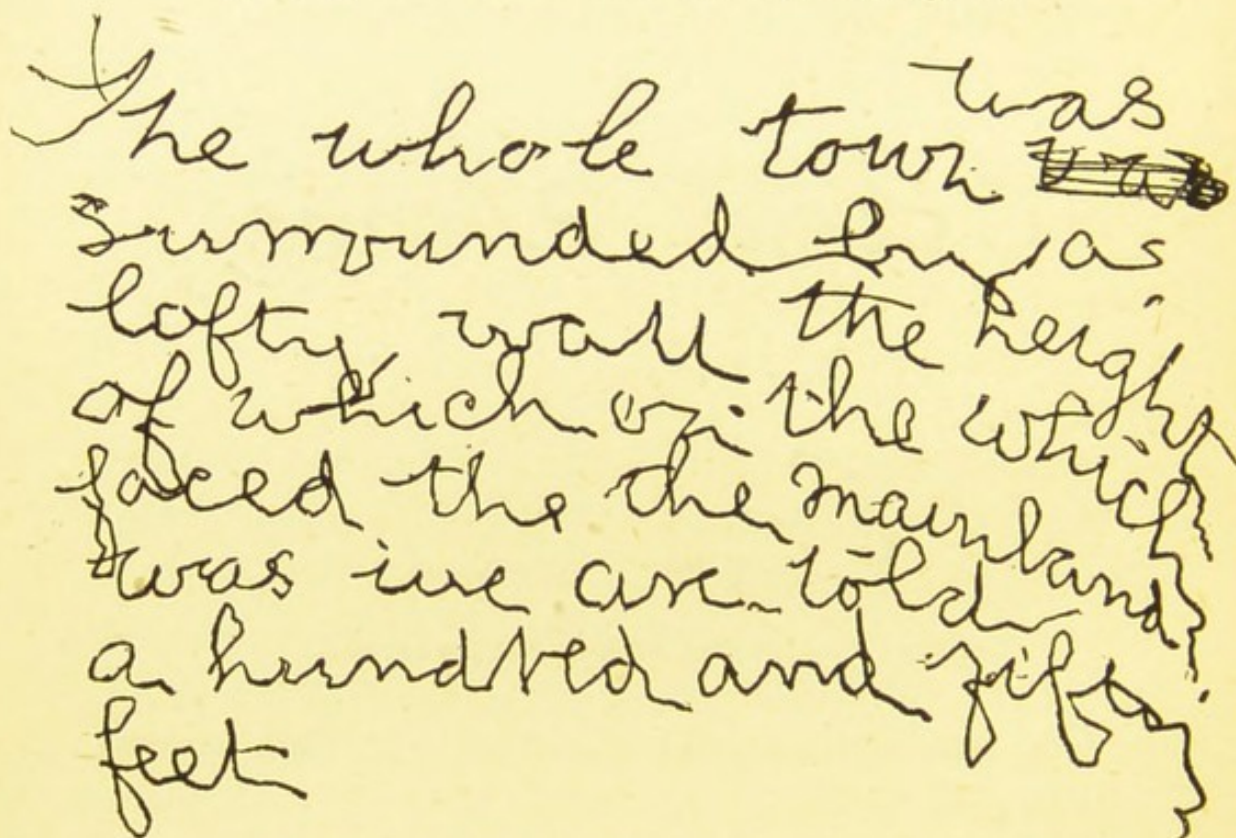 The whole town was
surrounded by as
lofty wall the height
of which on the which
faced the the mainland
was we are told
a hundred and fifty
feet